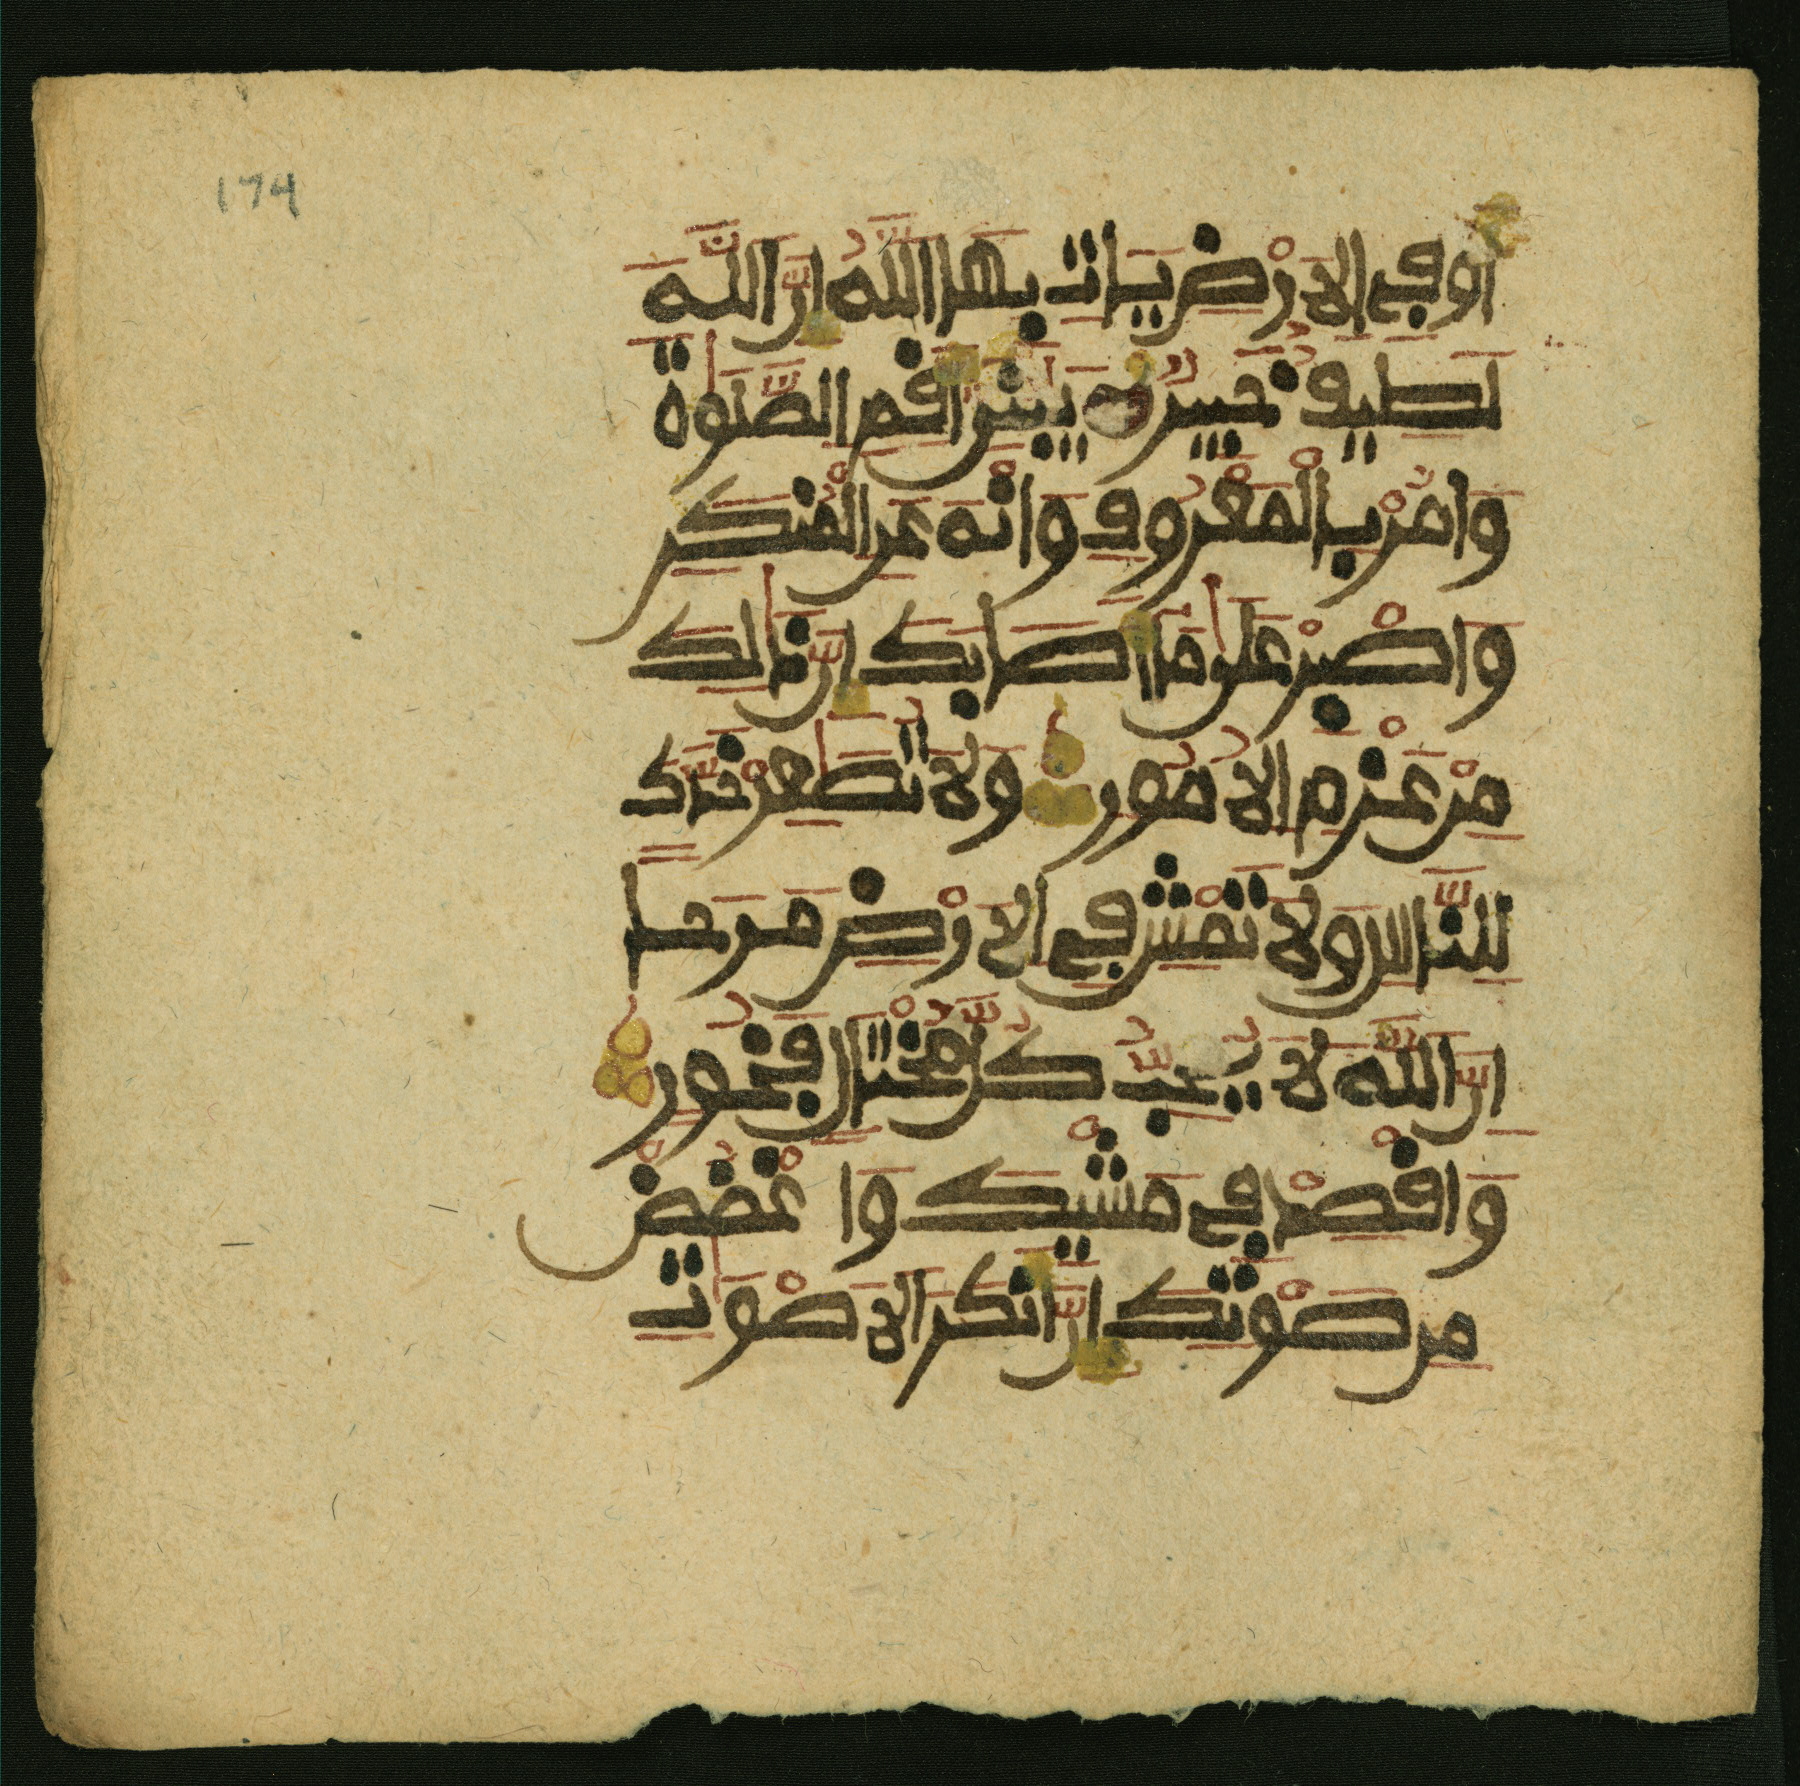 174
أَوْ فِي الَارْضِ يَاتِ بِهَا اللَّهُ إِنَّ اللَّهَ
لَطِيفٌ خَبِيرٌ يَبُنَيِّ أَقِمِ الصَّلَوٰةَ
وَامُرْ بِالْمَعْرُوفِ وَانْهَ عَنِ الْمُنكَرِ
وَاصْبِرْ عَلَىٰ مَا أَصَابَكَ إِنَّ ذَٰلِكَ
مِنْ عَزْمِ الُامُورِ وَلَا تُصَٰعِرْ خَدَّكَ
لِلنَّاسِ وَلَا تَمْشِ فِي الَارْضِ مَرَحًا
إِنَّ اللَّهَ لَا يُحِبُّ كُلَّ مُخْتَالٍ فَخُورٍ
وَاقْصِدْ فِي مَشْيِكَ وَاغْضُضْ
مِن صَوْتِكَ إِنَّ أَنكَرَ الَاصْوَٰتِ